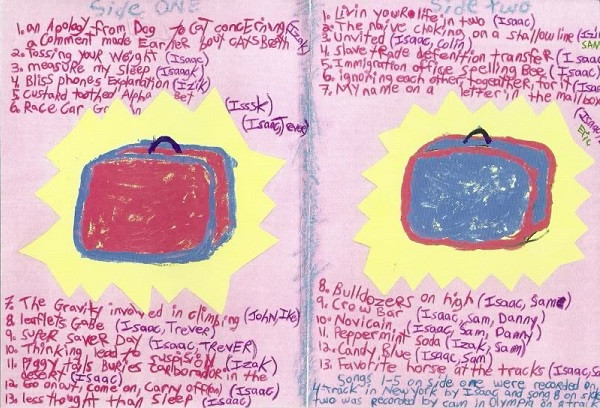 Side ONE
1. an Apology From Dog to Cat concerning (Isaak)
a comment made Earlier bout CAts Breth
2. Tossing your weight (Isaac)
3. measure my sleep (Isaank)
4. Bliss phones Explanation (Izik)
5. Custard toothed Alpha Bet (Isssk)
6. Race Car (Isaac, Trever)
7. The Gravity involved in climbing (John, Ike)
8. leaflets GaBe (Isaac, Trever)
9. Super Saver Day (Isaac, TREVER)
10. Thinking lead to suspisien (Izak)
11. Piggy Tails Buries carborador in the
(Isaac)
12. Go on out, come on, Carry off (Isaac)
13. less thought than sleep (Isaac)
Side Two
1. Livin youre life in two (Isaac)
2. The naive choking on a stallow line
3. Unvited (Isaac, Colin)
4. slave trade detention transfer (Isaac
5. Immigration office spelling Bee (Isaac)
6. ignoring each other, the weather, for it (Isaac
7. My name on a letter in the mailbox
(Isaac
Eric
8. Bulldozers on high (Isaac, Same
9. Crow Bar (Isaac, Sam, Danny)
10. Novicain (Isaac, Sam, Danny)
11. Peppermint Soda (Izak, Sam)
12. Candy Blue (Isaac, Sam)
13. Favorite horse at the tracks (Isaac, Sa
Songs 1-5 on side one were recorded on
4 track in New York by Isaac and song 8 on side
two was recorded by cam in Olympia on 8 track